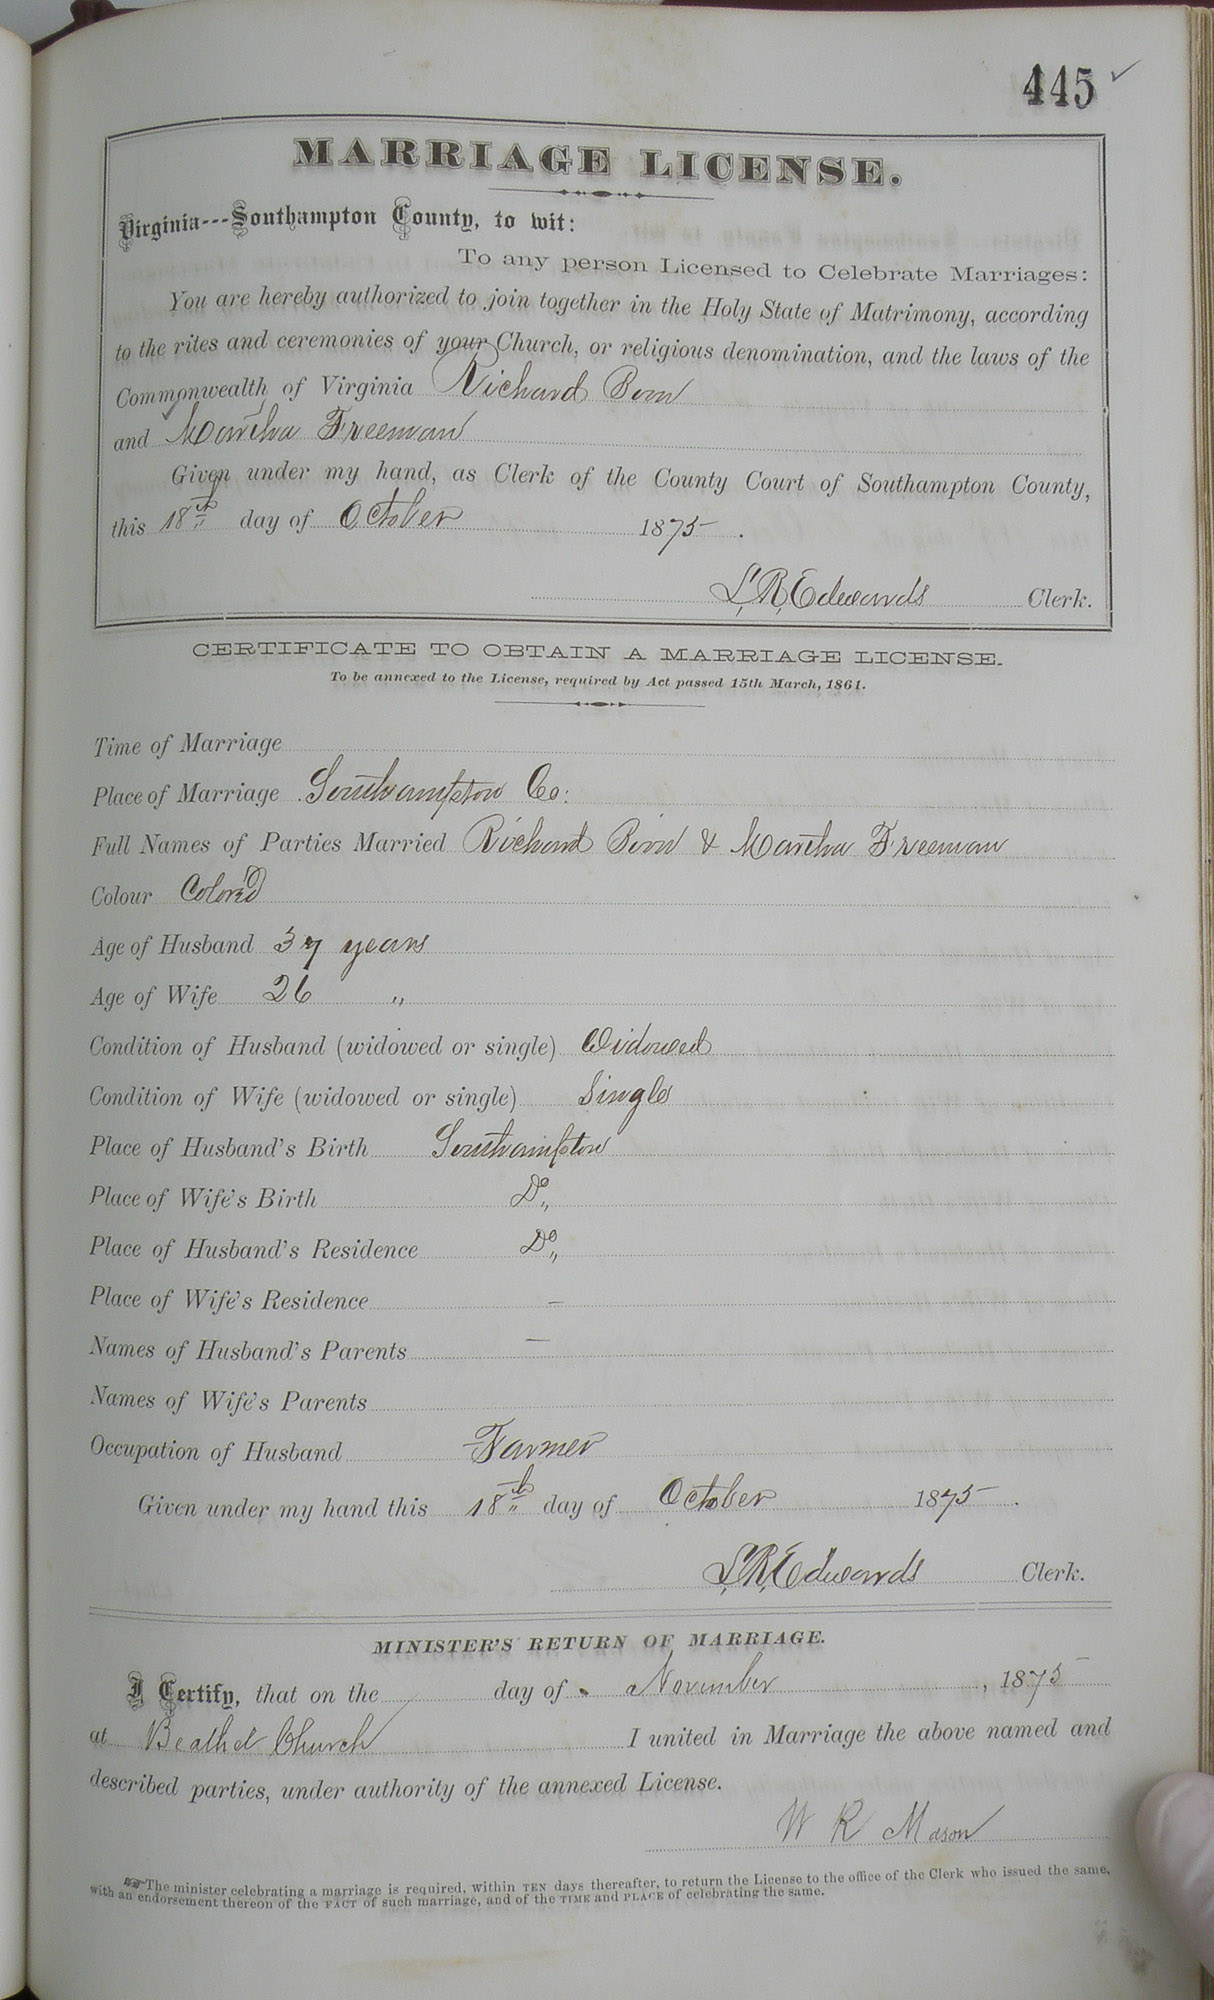 445 ✓
MARRIAGE LICENSE.
Virginia---Southampton County, to wit:
To any person Licensed to Celebrate Marriages:
You are hereby authorized to join together in the Holy State of Matrimony, according
to the rites and ceremonies of your Church, or religious denomination, and the laws of the
Commonwealth of Virginia Richard
and Martha Freeman
Given under my hand, as Clerk of the County Court of Southampton County,
this 18th day of October 1875.
L. R. Edwards Clerk.
CERTIFICATE TO OBTAIN A MARRIAGE LICENSE.
To be annexed to the License, required by Act passed 15th March, 1861.
Time of Marriage
Place of Marriage Southampton Co:
Full Names of Parties Married Richard & Martha Freeman
Colour Colored
Age of Husband 37 years
Age of Wife 26 "
Condition of Husband (widowed or single) Widowed
Condition of Wife (widowed or single) Single
Place of Husband's Birth Southampton
Place of Wife's Birth Do "
Place of Husband's Residence Do "
Place of Wife's Residence —
Names of Husband's Parents —
Names of Wife's Parents
Occupation of Husband Farmer
Given under my hand this 18th day of October 1875.
L. R. Edwards Clerk.
MINISTER'S RETURN OF MARRIAGE.
I Certify, that on the day of November, 1875
at Beathel Church I united in Marriage the above named and
described parties, under authority of the annexed License.
W R Mason
The minister celebrating a marriage is required, within TEN days thereafter, to return the License to the office of the Clerk who issued the same,
with an endorsement thereon of the FACT of such marriage, and of the TIME and PLACE of celebrating the same.